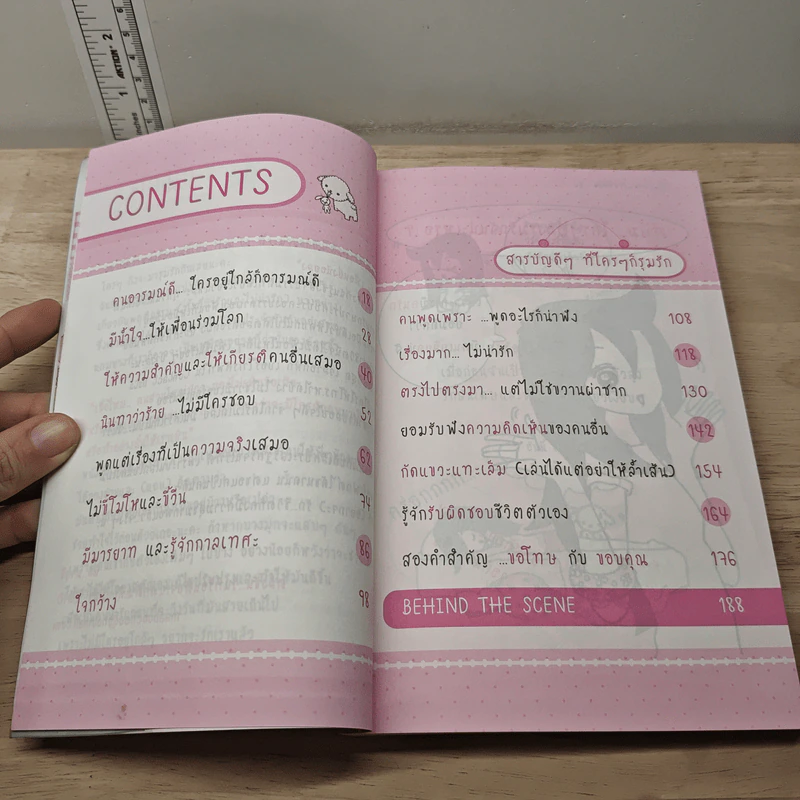 CONTENTS
คนอารมณ์ดี... ใครอยู่ใกล้ก็อารมณ์ดี 18
มีน้ำใจ...ให้เพื่อนร่วมโลก 28
ให้ความสำคัญและให้เกียรติคนอื่นเสมอ 40
นินทาว่าร้าย ...ไม่มีใครชอบ 52
พูดแต่เรื่องที่เป็นความจริงเสมอ 62
ไม่ขี้โมโหและขี้วีน 74
มีมารยาท และรู้จักกาลเทศะ 86
ใจกว้าง 98
สารบัญดีๆ ที่ใครๆก็รุมรัก
คนพูดเพราะ ...พูดอะไรก็น่าฟัง 108
เรื่องมาก... ไม่น่ารัก 118
ตรงไปตรงมา... แต่ไม่ใช่ขวานผ่าซาก 130
ยอมรับฟังความคิดเห็นของคนอื่น 142
กัดแขวะแทะเล็ม (เล่นได้แต่อย่าให้ล้ำเส้น) 154
รู้จักรับผิดชอบชีวิตตัวเอง 164
สองคำสำคัญ ...ขอโทษ กับ ขอบคุณ 176
BEHIND THE SCENE 188